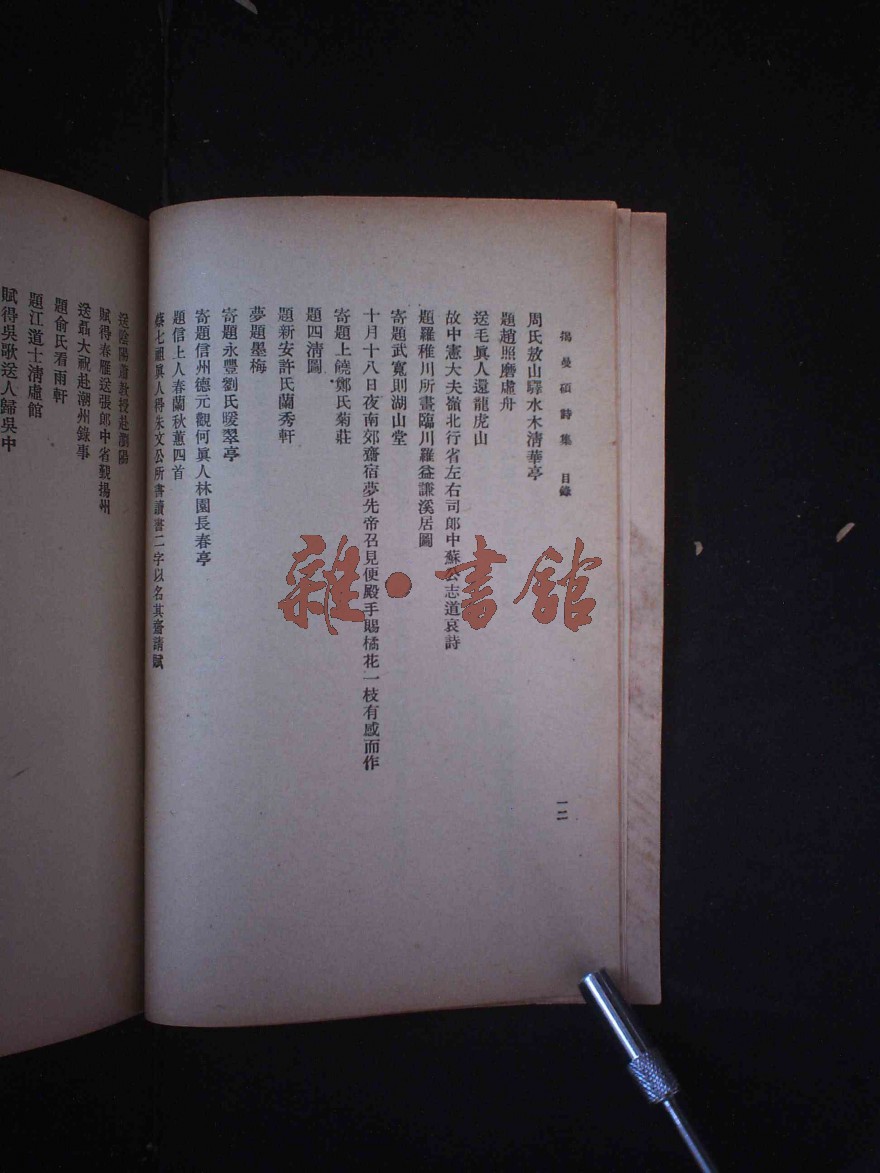 揭曼碩詩集 目錄
一二
周氏敖山驛水木清華亭
題趙照磨虛舟
送毛眞人還龍虎山
故中憲大夫嶺北行省左右司郎中蘇公志道哀詩
題羅稚川所畫臨川羅益謙溪居圖
寄題武寬則湖山堂
十月十八日夜南郊齋宿夢先帝召見便殿手賜橘花一枝有感而作
寄題上饒鄭氏菊莊
題四清圖
題新安許氏蘭秀軒
夢題墨梅
寄題永豐劉氏暖翠亭
寄題信州德元觀何眞人林園長春亭
題信上人春蘭秋蕙四首
蔡七祖眞人得朱文公所書讀書二字以名其齋請賦
送陰陽蕭教授赴瀏陽
賦得春雁送張郎中省覲揚州
送聶大祝赴潮州錄事
題俞氏看雨軒
題江道士清虛館
賦得吳歌送人歸吳中
雜·書館